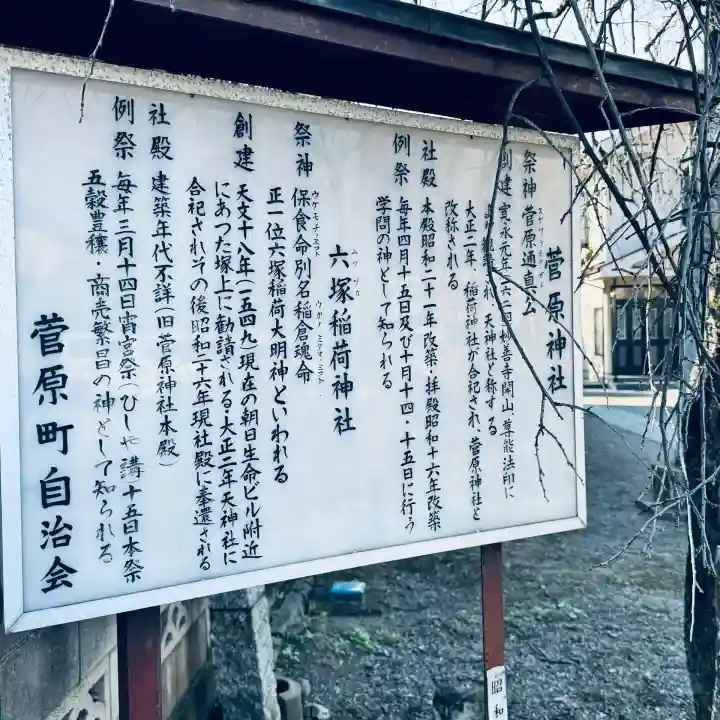 菅原神社
祭神 菅原道真公
創建 寛永元年
妙善寺開山、尊能法印に
天神社と称する
大正二年、稲荷神社が合祀され、菅原神社と
改称される
社殿 本殿昭和二十一年改築・拝殿昭和十六年改築
例祭 毎年四月十五日及び十月十四・十五日に行う
学問の神として知られる
六塚稲荷神社
ムツヅカ
祭神 保食命別名稲倉魂命
ウケモチノミコト
ウカノミタマノミコト
正一位六塚稲荷大明神といわれる
創建 天文十八年(一五四九)現在の朝日生命ビル附近
にあつた塚上に勧請される・大正二年天神社に
合祀されその後昭和二十六年現社殿に奉遷される
社殿 建築年代不詳(旧菅原神社本殿)
例祭 毎年三月十四日宵宮祭(ひしや講)十五日本祭
五穀豊穣、商売繁昌の神として知られる
菅原町自治会
昭和